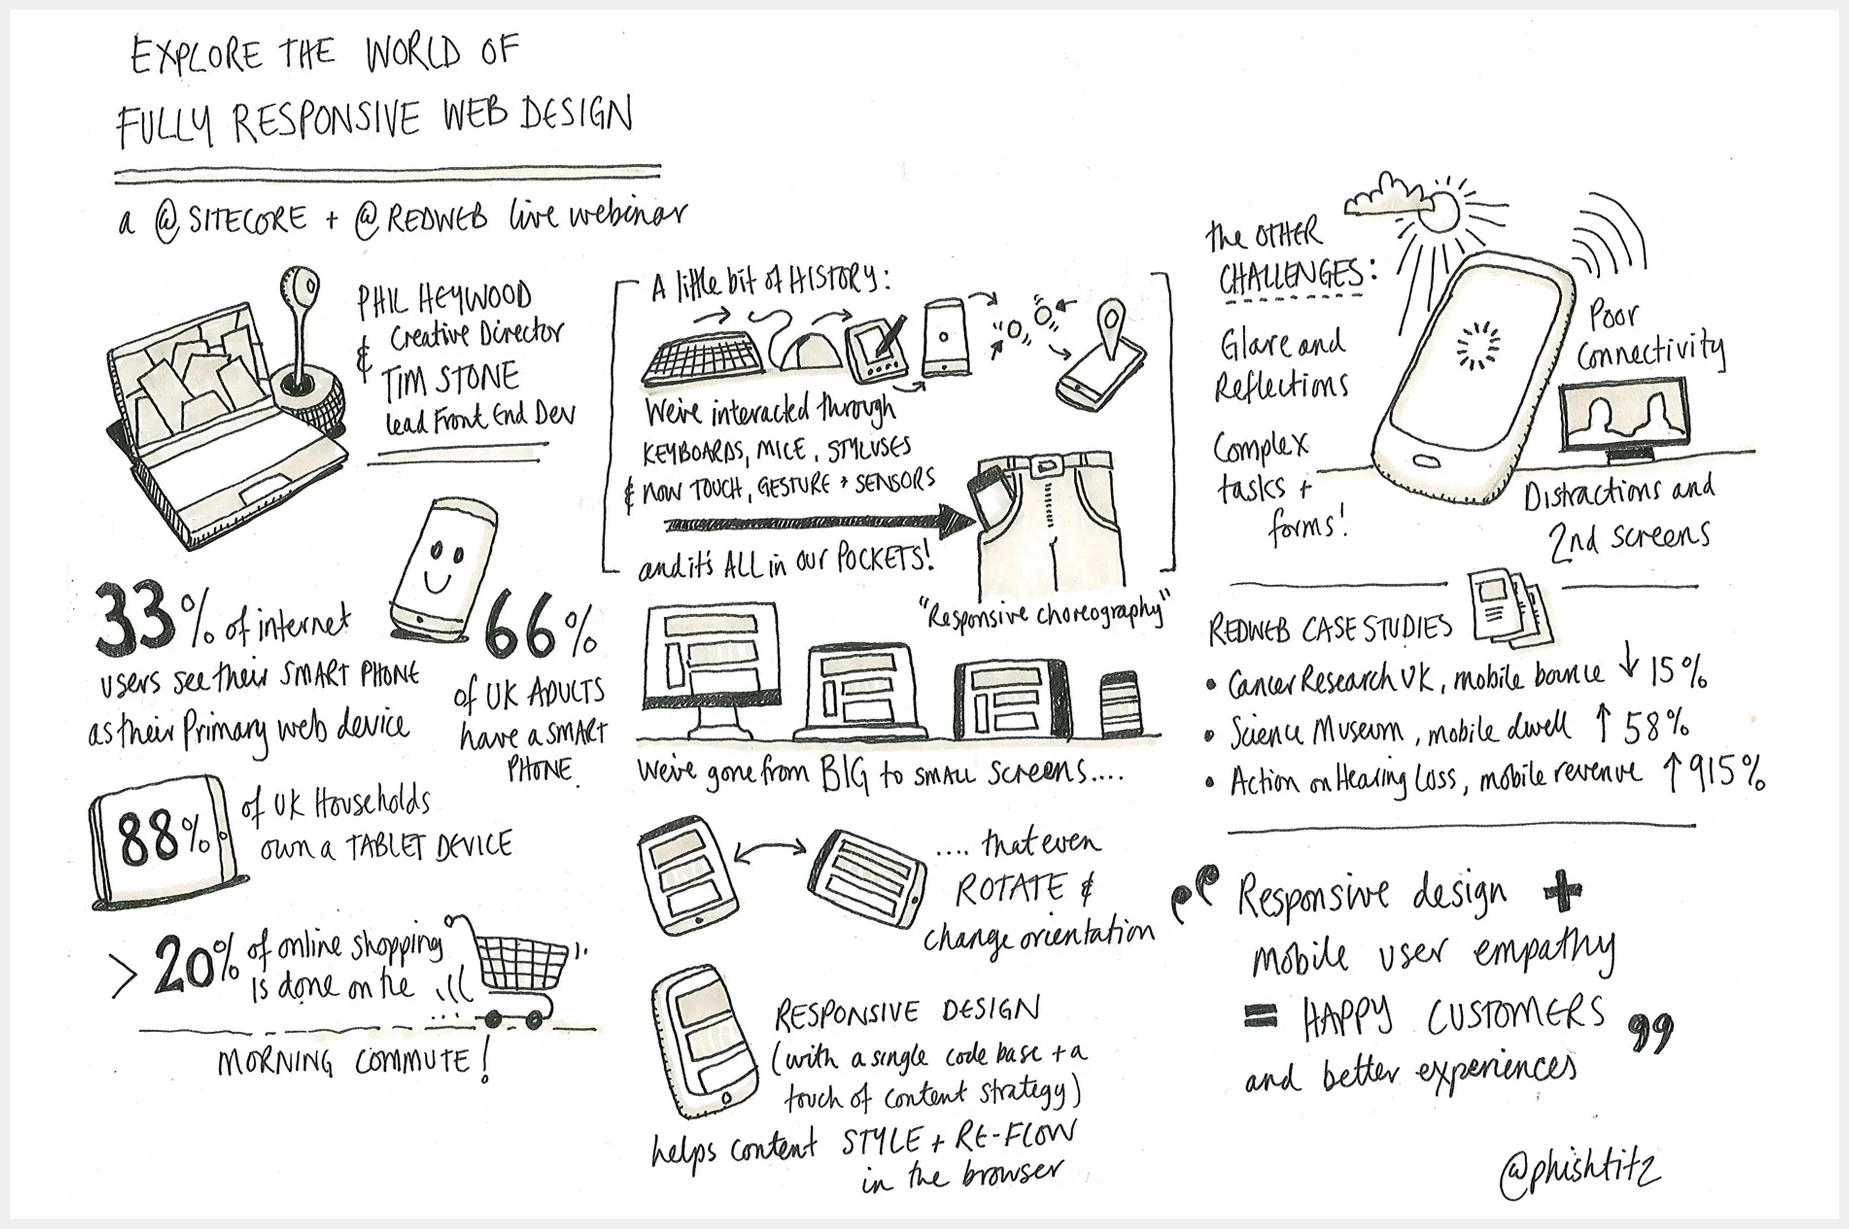 EXPLORE THE WORLD OF
FULLY RESPONSIVE WEB DESIGN
a @SITECORE + @REDWEB live webinar
PHIL HEYWOOD
& Creative Director
TIM STONE
lead Front End Dev
33% of internet
users see their SMART PHONE
as their Primary web device
66%
of UK ADULTS
have a SMART
PHONE.
88% of UK Households
own a TABLET DEVICE
> 20% of online shopping
is done on the
MORNING COMMUTE!
A little bit of HISTORY:
We've interacted through
KEYBOARDS, MICE, STYLUSES
& NOW TOUCH, GESTURE + SENSORS
and it's ALL in OUR POCKETS!
"Responsive choreography"
We've gone from BIG to SMALL screens....
.... that even
ROTATE &
change orientation
RESPONSIVE DESIGN
(with a single code base + a
touch of content strategy)
helps content STYLE + RE-FLOW
in the browser
the OTHER
CHALLENGES:
Glare and
Reflections
Complex
tasks +
forms!
Poor
Connectivity
Distractions and
2nd screens
REDWEB CASE STUDIES
• Cancer Research UK, mobile bounce ↓ 15%
• Science Museum, mobile dwell ↑ 58%
• Action on Hearing Loss, mobile revenue ↑ 915%
“Responsive design +
mobile user empathy
= HAPPY CUSTOMERS
and better experiences”
@phishtitz